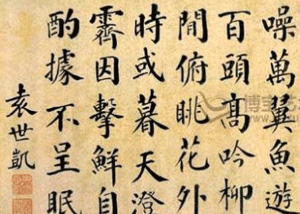 噪萬翼魚遊
百頭高吟柳
間俯眺花外
時或暮天澄
霽因擊鮮自
酌據不呈眠
袁世凱